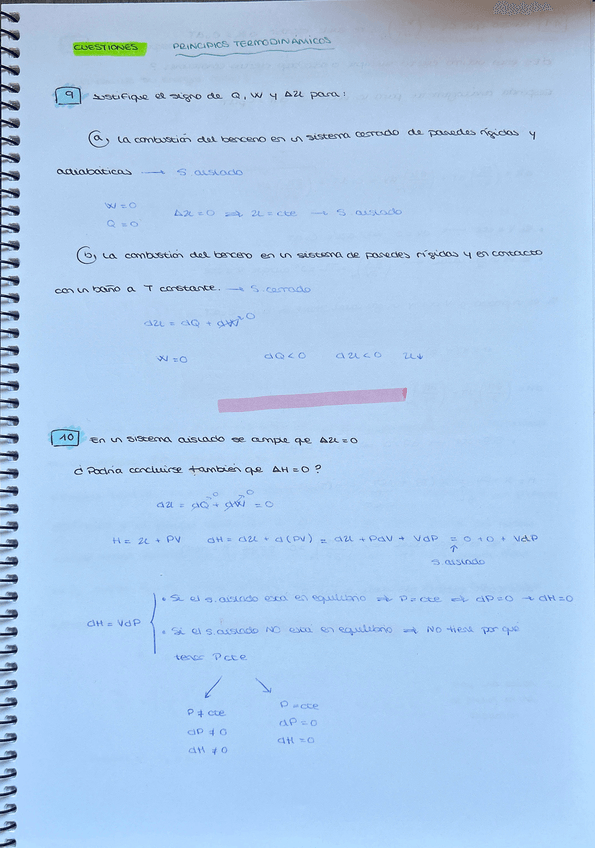 CUESTIONES PRINCIPIOS TERMODINÁMICOS
9 Justifique el signo de Q, W y ΔU para:
a) La combustión del benceno en un sistema cerrado de paredes rígidas y
adiabáticas → S. aislado
W=0
Q=0
ΔU=0 ⇒ U=cte → S. aislado
b) La combustión del benceno en un sistema de paredes rígidas y en contacto
con un baño a T constante. → S. cerrado
dU = dQ + dW 0
W=0 dQ<0 dU<0 U↓
10 En un sistema aislado se cumple que ΔU=0
¿Podría concluirse también que ΔH=0?
dU = dQ 0 + dW 0 = 0
H = U + PV dH = dU + d(PV) = dU + PdV + VdP = 0 + 0 + VdP
↑
S. aislado
• Si el s. aislado está en equilibrio ⇒ P=cte ⇒ dP=0 → dH=0
dH = VdP
• Si el s. aislado NO está en equilibrio ⇒ NO tiene por qué
tener P cte
P ≠ cte
dP ≠ 0
dH ≠ 0
P = cte
dP = 0
dH = 0